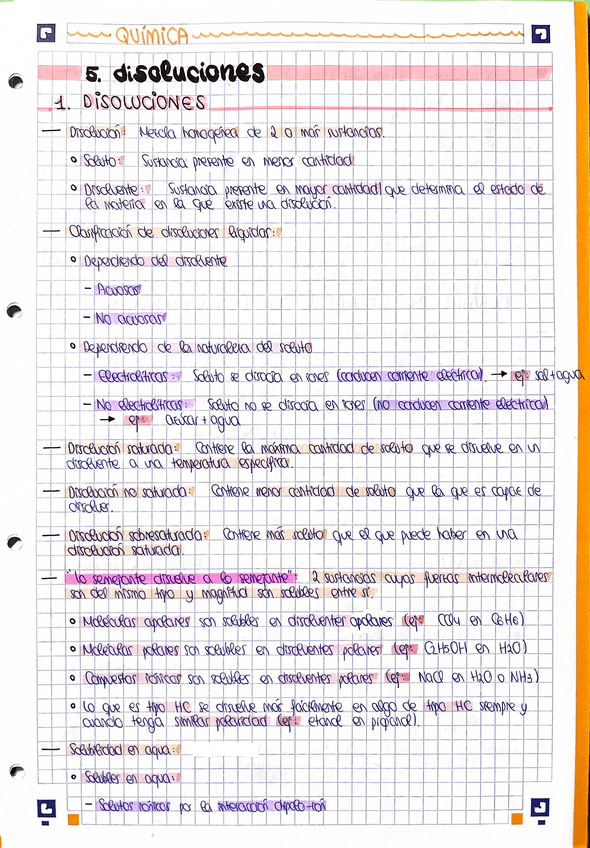 QUÍMICA
5. disoluciones
1. DISOLUCIONES
— Disolución: Mezcla homogénea de 2 o más sustancias.
° Soluto: Sustancia presente en menor cantidad
° Disolvente: Sustancia presente en mayor cantidad que determina el estado de
la materia en la que existe una disolución.
— Clasificación de disoluciones líquidas:
° Dependiendo del disolvente
- Acuosas
- No acuosas
° Dependiendo de la naturaleza del soluto
- Electrolíticas: Soluto se disocia en iones (conducen corriente eléctrica). → ej: sal + agua
- No electrolíticas: Soluto no se disocia en iones (no conducen corriente eléctrica)
→ ej: azúcar + agua
— Disolución saturada: Contiene la máxima cantidad de soluto que se disuelve en un
disolvente a una temperatura específica.
— Disolución no saturada: Contiene menor cantidad de soluto que la que es capaz de
disolver.
— Disolución sobresaturada: Contiene más soluto que el que puede haber en una
disolución saturada.
— "Lo semejante disuelve a lo semejante": 2 sustancias cuyas fuerzas intermoleculares
son del mismo tipo y magnitud son solubles entre sí.
° Moléculas apolares son solubles en disolventes apolares (ej: CCl4 en C6H6)
° Moléculas polares son solubles en disolventes polares (ej: C2H5OH en H2O)
° Compuestos iónicos son solubles en disolventes polares (ej: NaCl en H2O o NH3)
° Lo que es tipo HC se disuelve más fácilmente en algo de tipo HC siempre y
cuando tenga similar polaridad (ej: etanol en propanol).
— Solubilidad en agua:
° Solubles en agua:
- Solutos iónicos por la interacción dipolo-ión